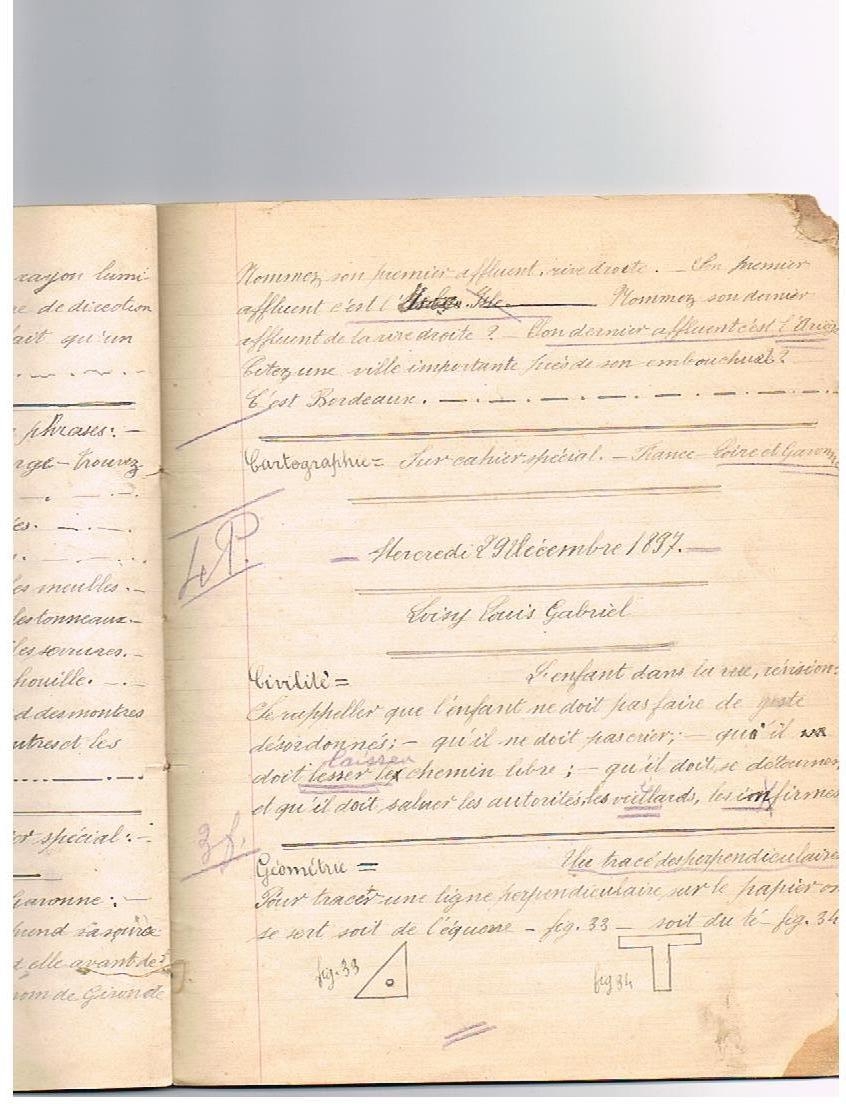 rayon lumi-
de direction
fait qu'un
phrases: -
Trouvez
les meubles. -
les tonneaux. -
les serrures. -
houille. -
d des montres
utres et les
spécial: -
Garonne: -
prend sa source
elle avant de
nom de Gironde
Nommez son premier affluent, rive droite. - Son premier
affluent c'est l' Isle. Nommez son dernier
affluent de la rive droite? - Son dernier affluent c'est l'Ariège
Citez une ville importante près de son embouchure?
C'est Bordeaux.
Cartographie = Sur cahier spécial. - France - Loire et Garonne
4 P.
Mercredi 29 Décembre 1897.
Loisy Louis Gabriel
Civilité = L'enfant dans la rue, révision:
Se rappeller que l'enfant ne doit pas faire de geste
désordonnés; - qu'il ne doit pas crier; - qu'il
laisser
doit lesser le chemin libre; - qu'il doit se détourner,
et qu'il doit saluer les autorités, les vieillards, les infirmes
3 f.
Géométrie = Un tracé des perpendiculaires
Pour tracer une ligne perpendiculaire, sur le papier on
se sert soit de l'équerre - fig. 33 - soit du té - fig. 34
fig. 33
fig 34